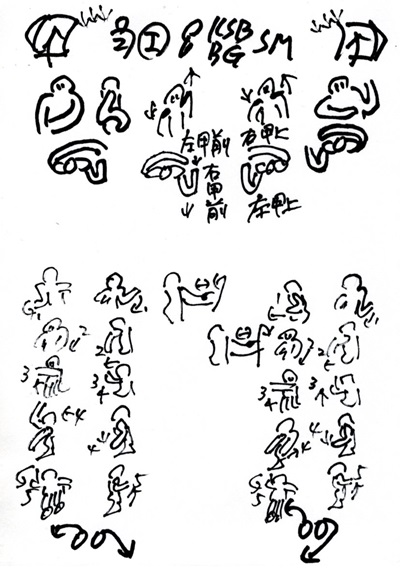 I KSB SM
BG
左甲前 右甲上
右甲前 左甲上
1 1 1
2 2 2 2
3 3 3 3
4 4 4 4
5 5 5 5